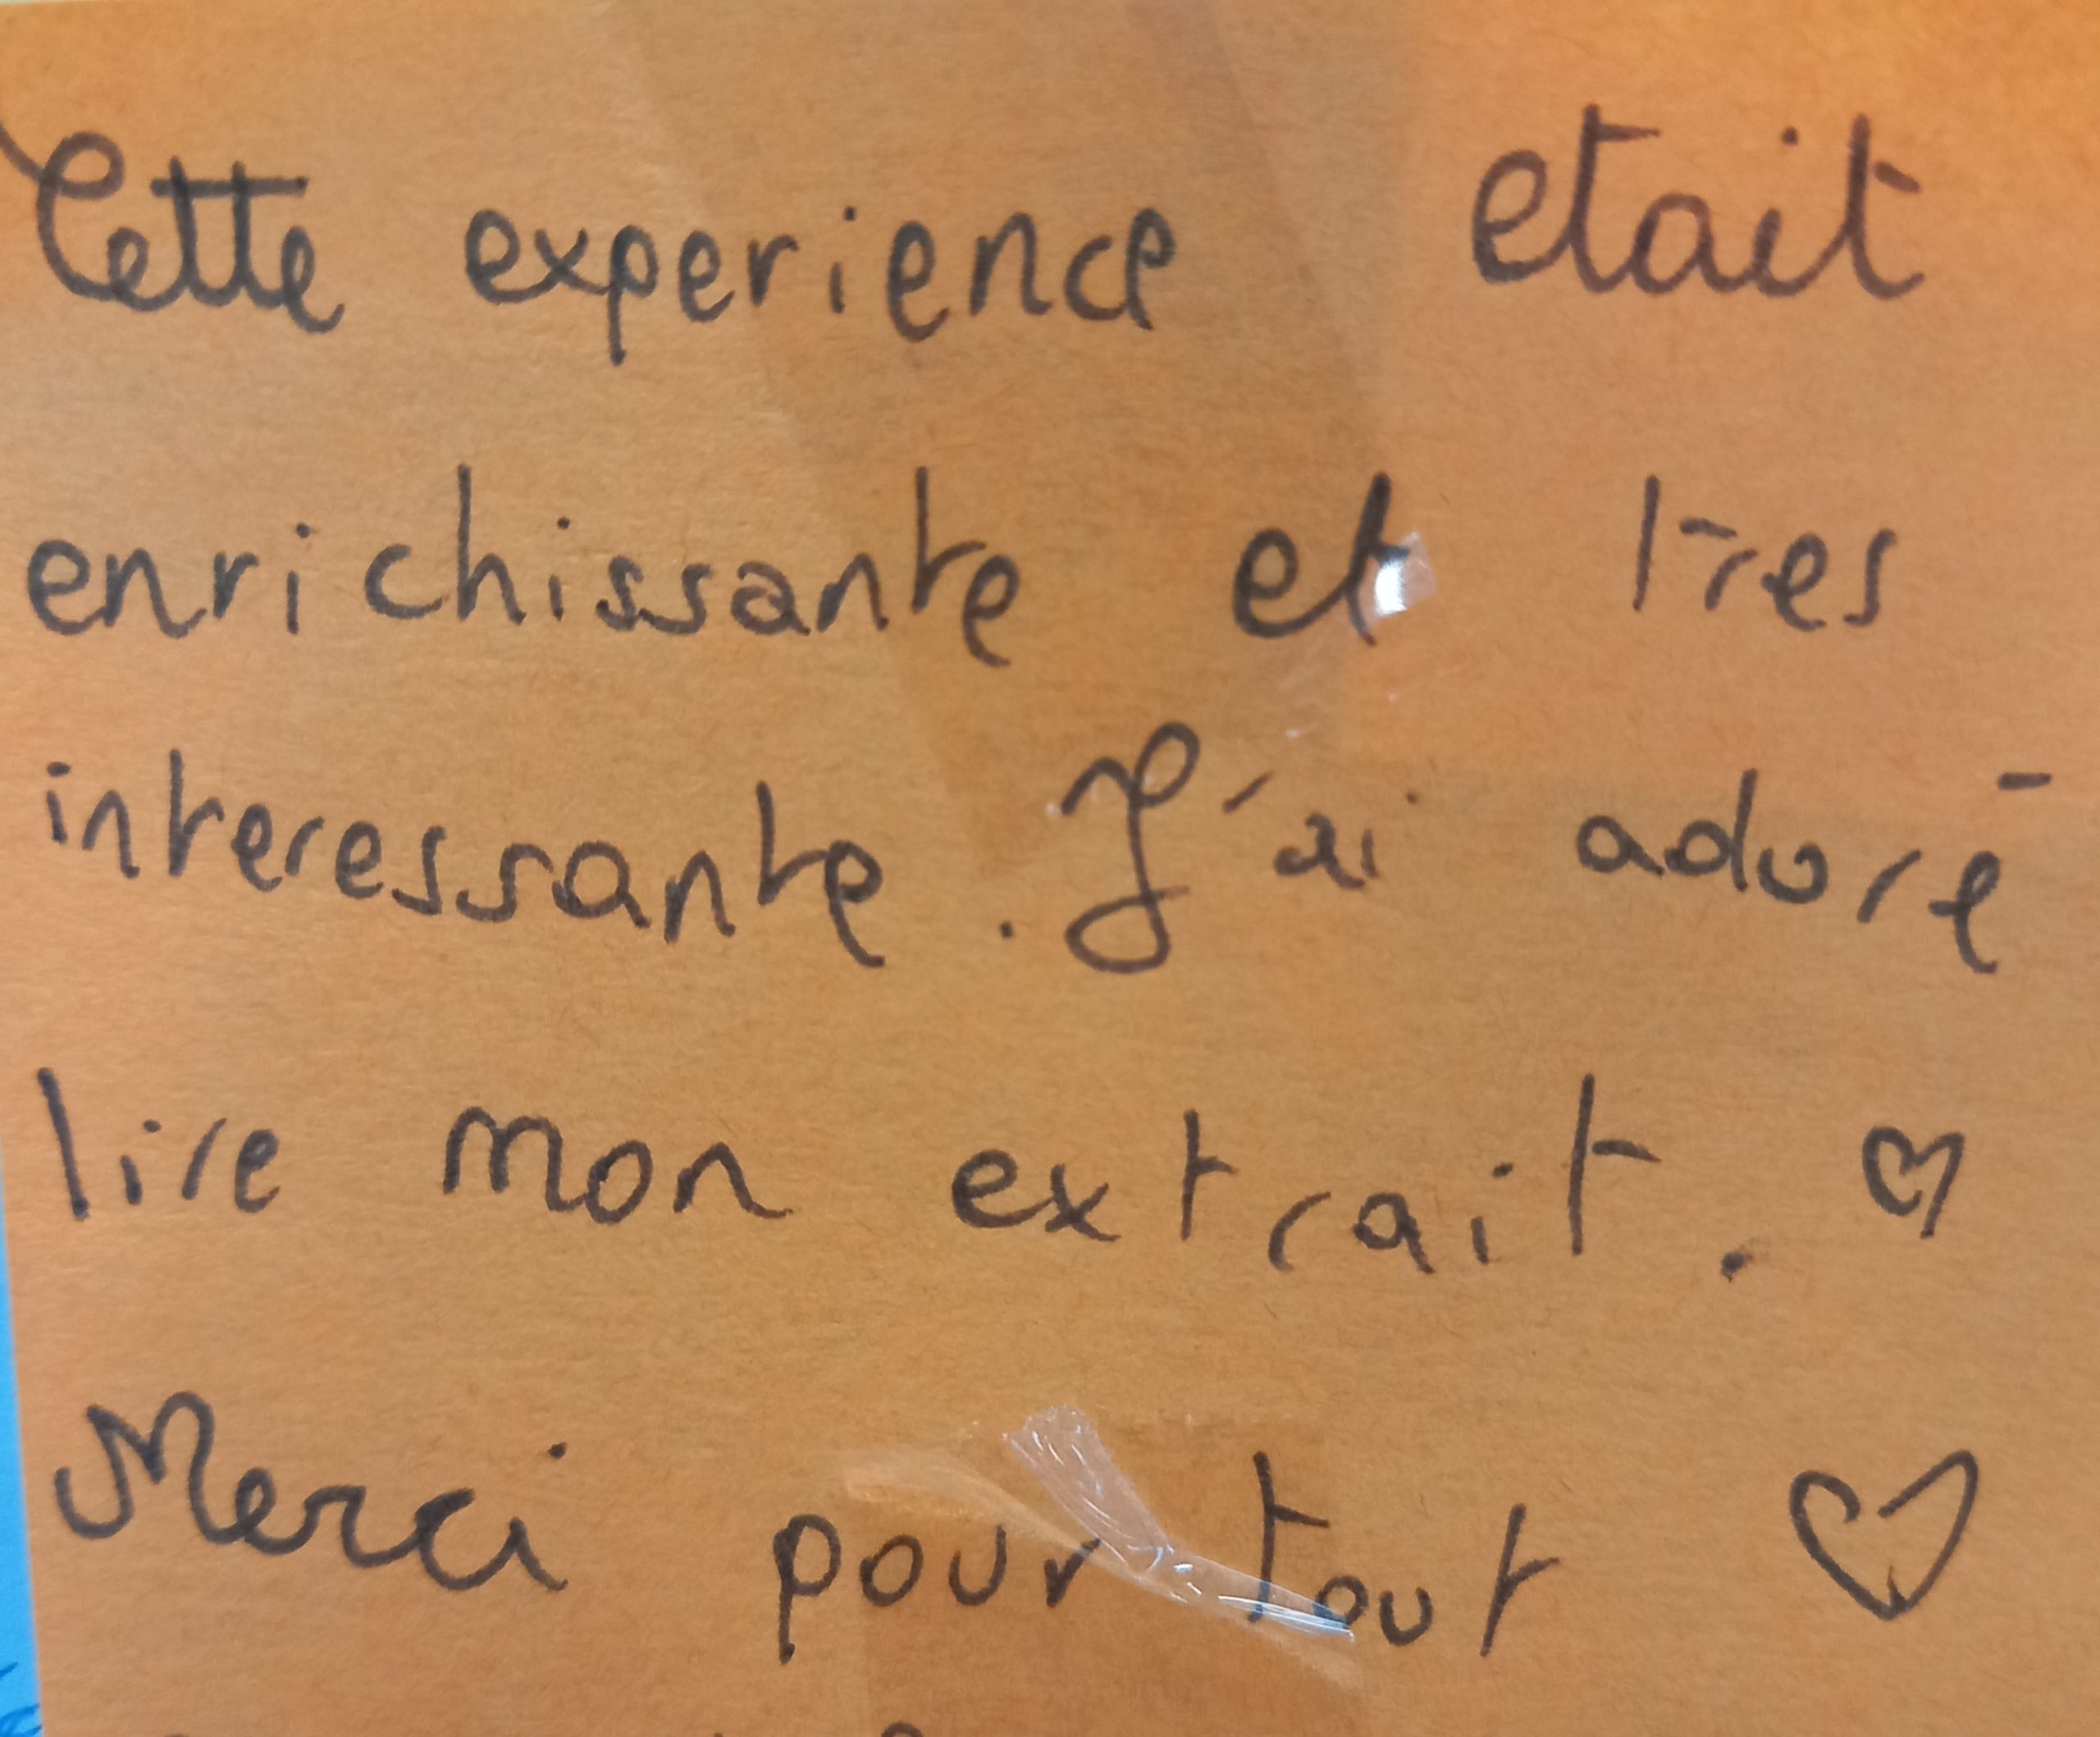 Cette experience etait
enrichissante et tres
interessante. J'ai adoré
lire mon extrait. ♡
Merci pour tout ♡